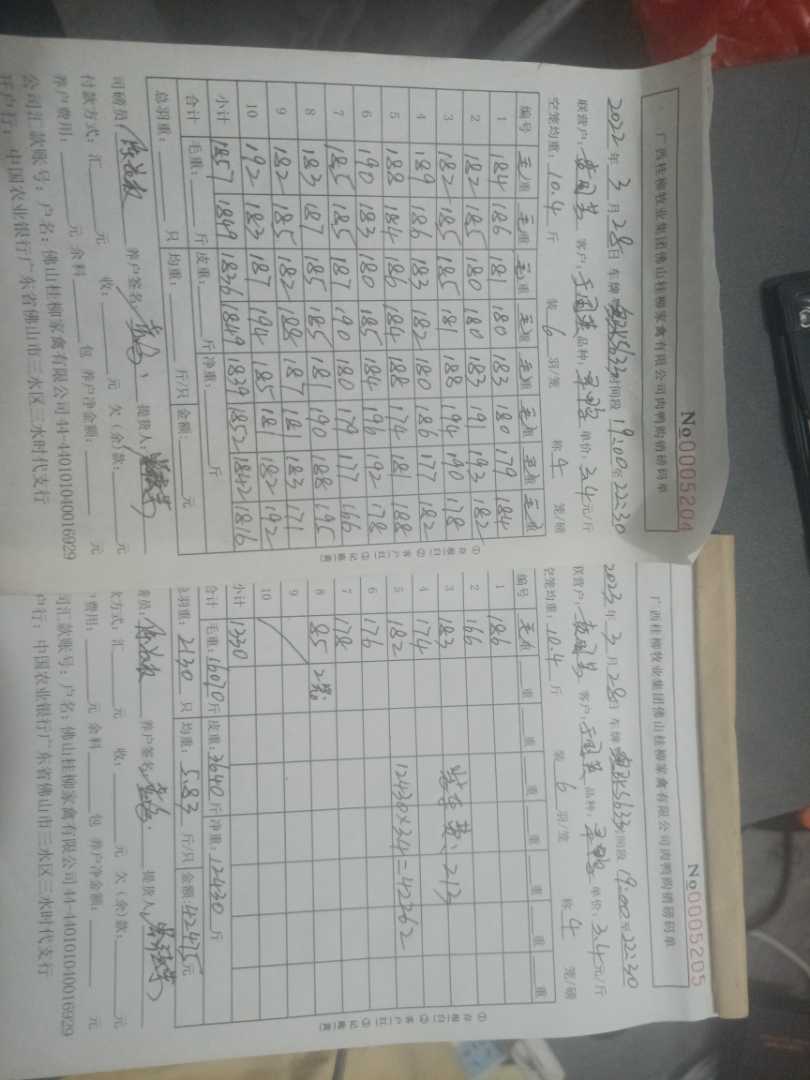 No 0005204
广西桂柳牧业集团佛山桂柳家禽有限公司肉鸭购销磅码单
2022年3月28日 车牌 5633 时间段 19:00至22:30
联营户: 客户: 品种: 单价:3.4元/斤
空笼均重:10.4斤 装6羽/笼 称4笼/磅
编号 毛重 毛重 毛重 毛重 毛重 毛重 毛重 毛重
1 184 186 181 180 183 180 179 184
2 182 185 180 180 183 191 193 182
3 182 185 185 181 188 194 190 178
4 189 186 183 182 180 186 177 182
5 188 184 186 184 188 174 181 188
6 190 183 180 185 184 196 192 178
7 185 185 187 190 180 179 177 166
8 183 187 185 185 181 190 188 195
9 182 185 182 188 187 181 183 171
10 192 183 187 194 185 181 182 192
小计 1857 1849 1836 1849 1839 1852 1842 1816
合计 毛重:斤 皮重:斤 净重:斤
总羽重:只 均重:斤/只 金额:元
司磅员: 养户签名: 提货人:
付款方式:汇 元 收: 元 欠(余)款: 元
养户费用: 元 余料 包 养户净金额: 元
公司汇款账号:户名:佛山桂柳家禽有限公司44-440101040016929
开户行:中国农业银行广东省佛山市三水区三水时代支行
①存根(白)②客户(红)③记账(黄)
No 0005205
广西桂柳牧业集团佛山桂柳家禽有限公司肉鸭购销磅码单
2023年3月28日 车牌 5633 时间段 19:00至22:30
联营户: 客户: 品种: 单价:3.4元/斤
空笼均重:10.4斤 装6羽/笼 称4笼/磅
编号 毛重 重 重 重 重 重 重 重
1 186
2 166
3 183 装车费:213
4 174
5 182 12430×3.4=42262
6 176
7 178
8 85 2笼
9
10
小计 1330
合计 毛重:16070斤 皮重:3640斤 净重:12430斤
总羽重:2130只 均重:5.83斤/只 金额:42475元
磅员: 养户签名: 提货人:
款方式:汇 元 收: 元 欠(余)款: 元
户费用: 元 余料 包 养户净金额: 元
司汇款账号:户名:佛山桂柳家禽有限公司44-440101040016929
户行:中国农业银行广东省佛山市三水区三水时代支行
①存根(白)②客户(红)③记账(黄)